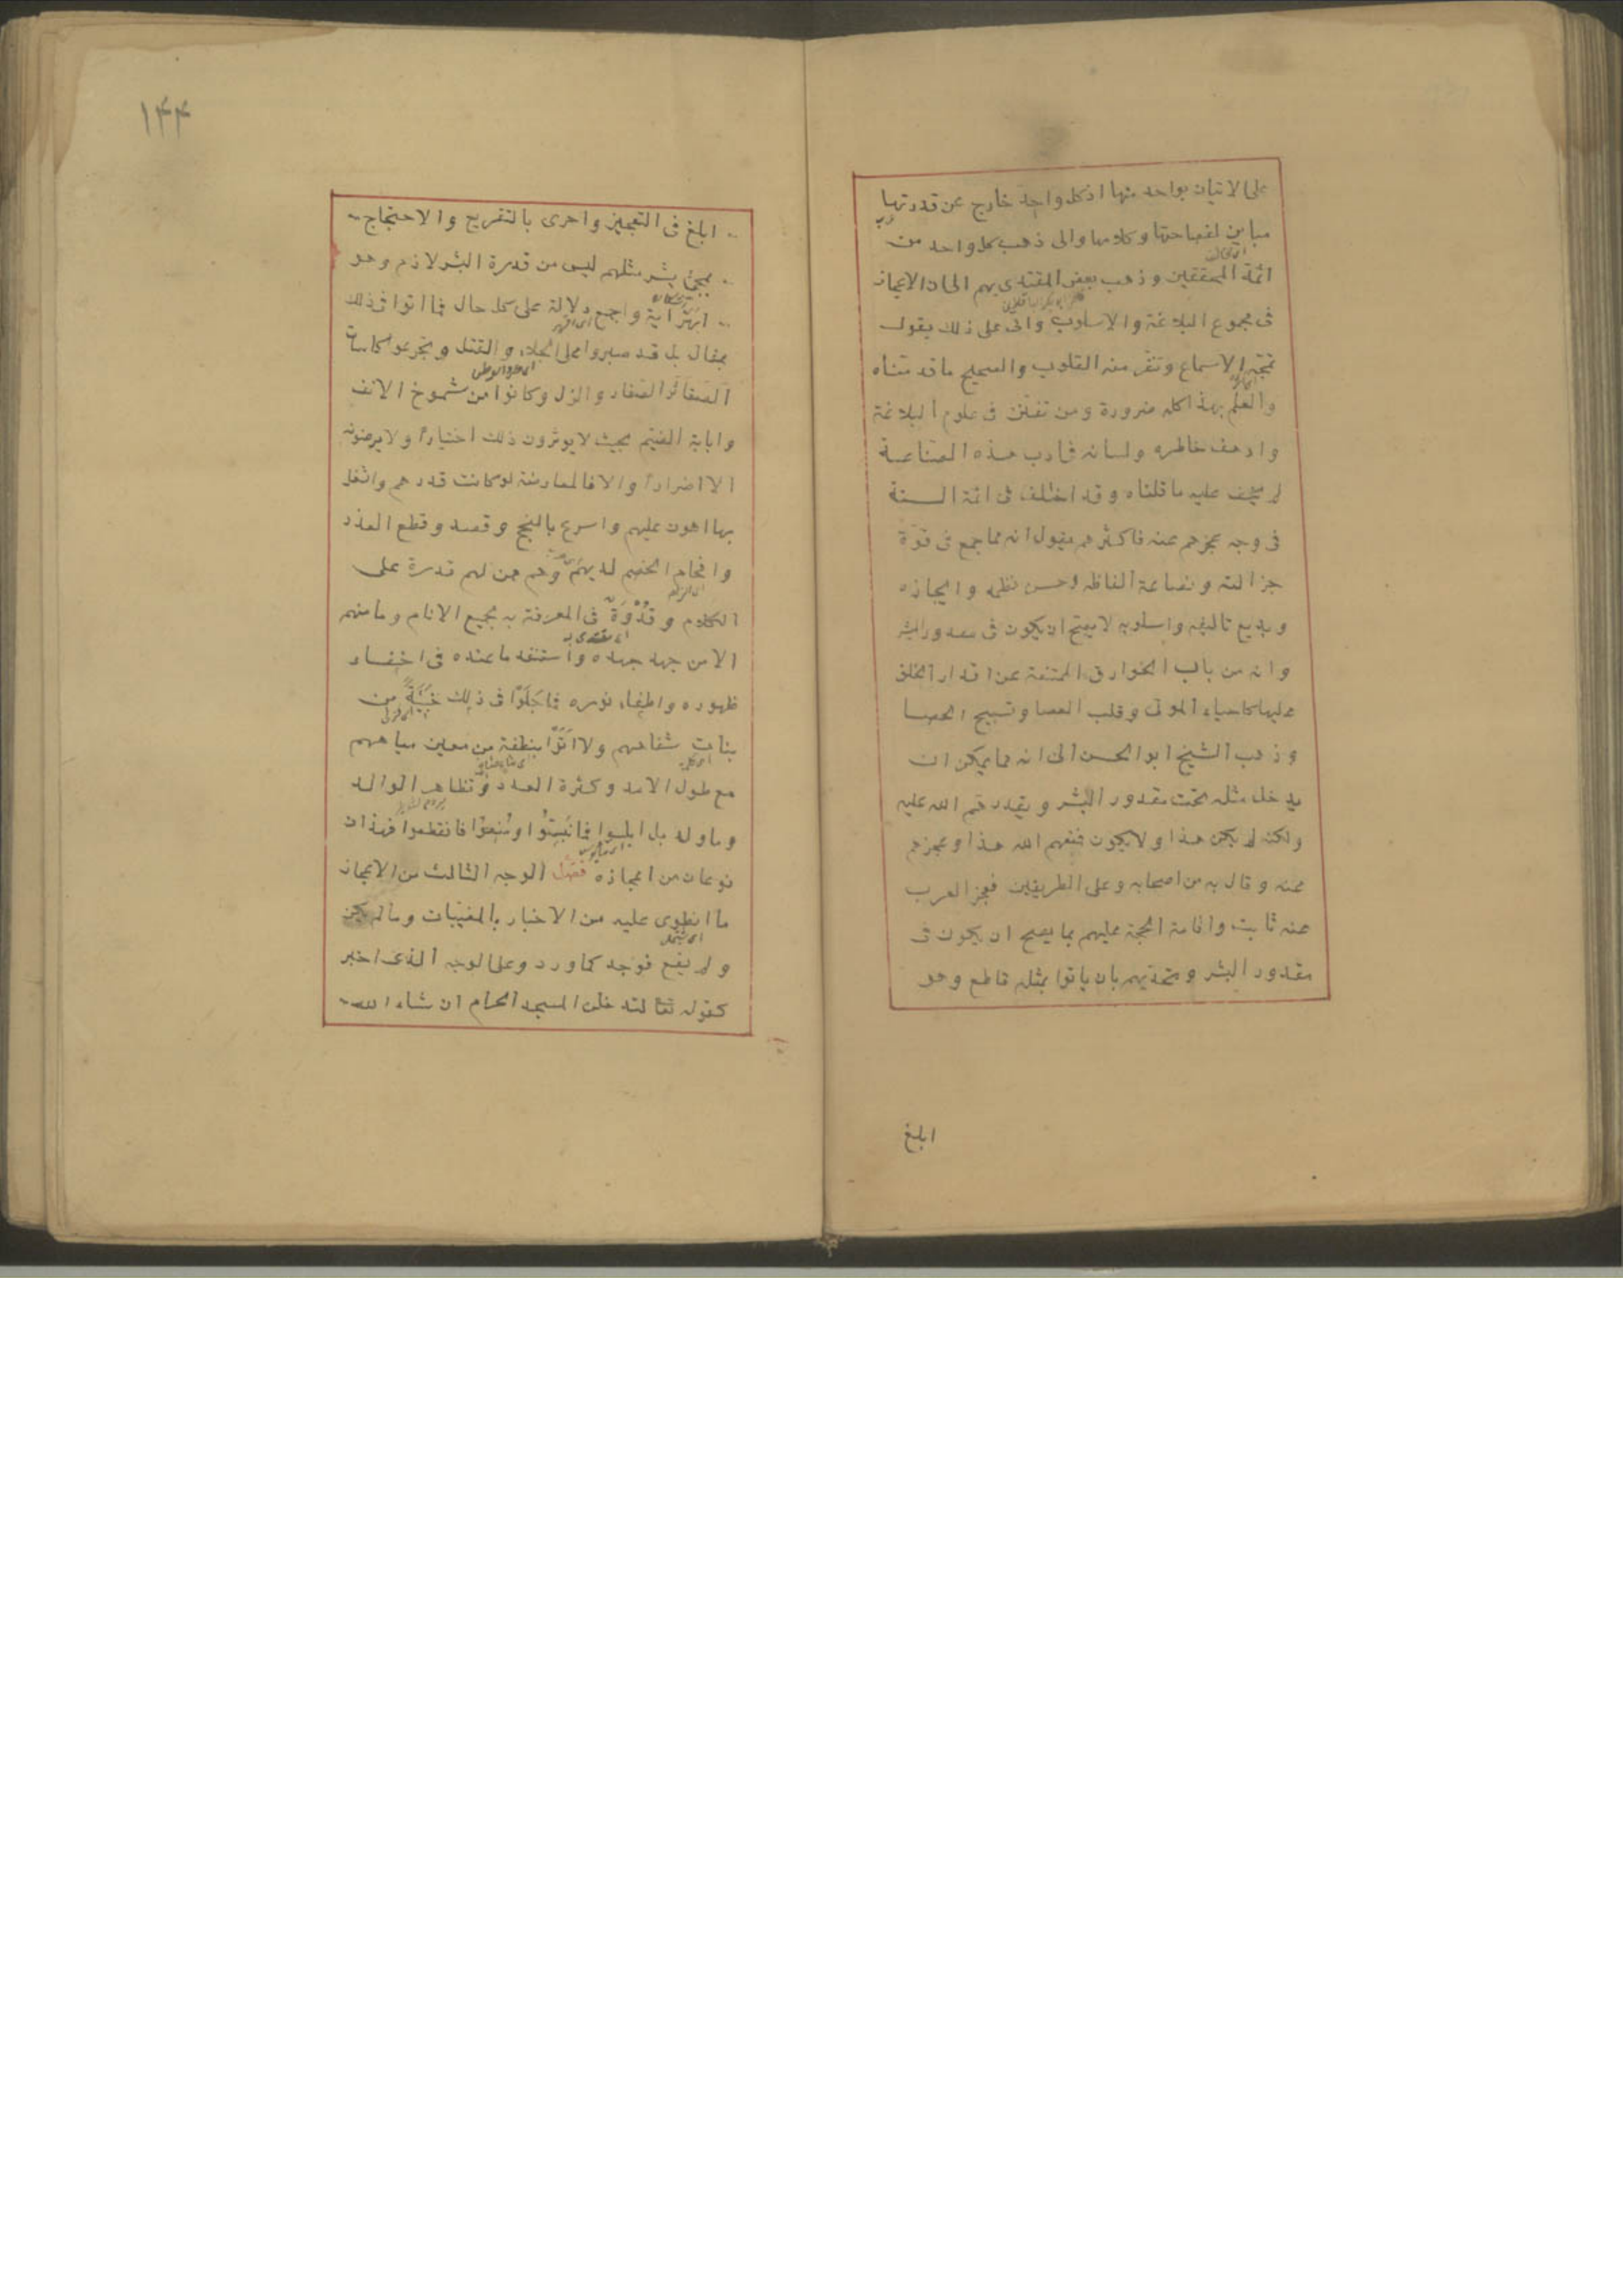 على الاتيان بواحد منها اذ كل واحد خارج عن قدرتها
مباين لفصاحتها وكلامها والى ذهب كل واحد من
ائمة المحققين وذهب بعض المقتدى بهم الى ان الاعجاز
فى مجموع البلاغة والاسلوب واتى على ذلك بقول
تمجّه الاسماع وتنفر منه القلوب والصحيح ما قدمناه
والعلم بهذا كله ضرورة ومن تفنّن فى علوم البلاغة
وارهف خاطره ولسانه فى ادب هذه الصناعة
لم يخف عليه ما قلناه وقد اختلف فى ائمة السنة
فى وجه عجزهم عنه فاكثرهم يقول انه مما جمع فى قوّة
جزالته ونصاعة الفاظه وحسن نظمه وايجازه
وبديع تاليفه واسلوبه لا يصح ان يكون فى مقدور البشر
وانه من باب الخوارق الممتنعة عن اقدار الخلق
عليها كاحياء الموتى وقلب العصا وتسبيح الحصا
وذهب الشيخ ابو الحسن الى انه مما يمكن ان
يدخل مثله تحت مقدور البشر ويقدرهم الله عليه
ولكنه لم يكن هذا ولا يكون فمنعهم الله هذا وعجزهم
عنه وقال به من اصحابه وعلى الطريقين فعجز العرب
عنه ثابت واقامة الحجة عليهم بما يصح ان يكون فى
مقدور البشر وتحديهم بان ياتوا بمثله قاطع وهو
ابلغ
١۴۴
ابلغ فى التعجيز واحرى بالتقريع والاحتجاج
بمجئ بشر مثلهم ليس من قدرة البشر لازم وهو
ابهر اية واجمع دلالة على كل حال فما اتوا فى ذلك
بمقال بل قد صبروا على الجلاء والقتل وتجرعو كاسات
اى طرد الوطن
الصغار والزل وكانوا من شموخ الانف
واباية الضيم بحيث لا يوثرون ذلك اختيارا ولا يرضونه
الا اضرارا والا فالمعارضة لو كانت قدرهم واشغل
بها اهون عليهم واسرع بالنجح وقصد وقطع العذر
وافحام الخصم لديهم وهم من لهم قدرة على
الكلام وقدوة فى المعرفة به بجميع الانام وما منهم
اى مقتدى به
الا من جهد جهده واستنفد ما عنده فى اخفاء
ظهوره واطفاء نوره فما جلوا فى ذلك خبيئة من
بنات شفاههم ولا اتوا بنطفة من معين مياههم
مع طول الامد وكثرة العدد وتظاهر الوالد
وما ولد بل ابلسوا فما نبسوا ومنعوا فانقطعوا فهذان
نوعان من اعجازه فصل الوجه الثالث من الاعجاز
ما انطوى عليه من الاخبار بالمغيبات وما لم يكن
اى اشتمل
ولم يقع فوجد كما ورد وعلى الوجه الذى اخبر
كقوله تعا لتدخلن المسجد الحرام ان شاء الله